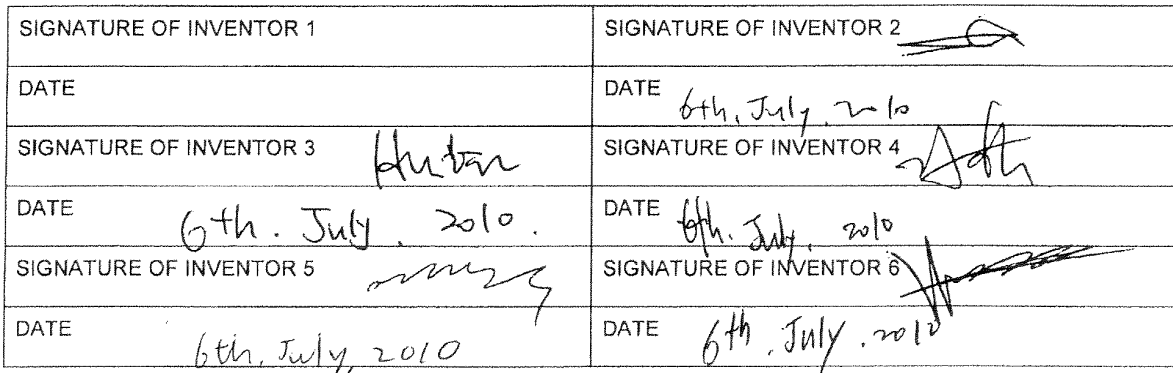 SIGNATURE OF INVENTOR 1
SIGNATURE OF INVENTOR 2
DATE
DATE 6th. July. 2010
SIGNATURE OF INVENTOR 3
SIGNATURE OF INVENTOR 4
DATE 6th. July. 2010.
DATE 6th. July. 2010
SIGNATURE OF INVENTOR 5
SIGNATURE OF INVENTOR 6
DATE 6th. July, 2010
DATE 6th. July. 2010